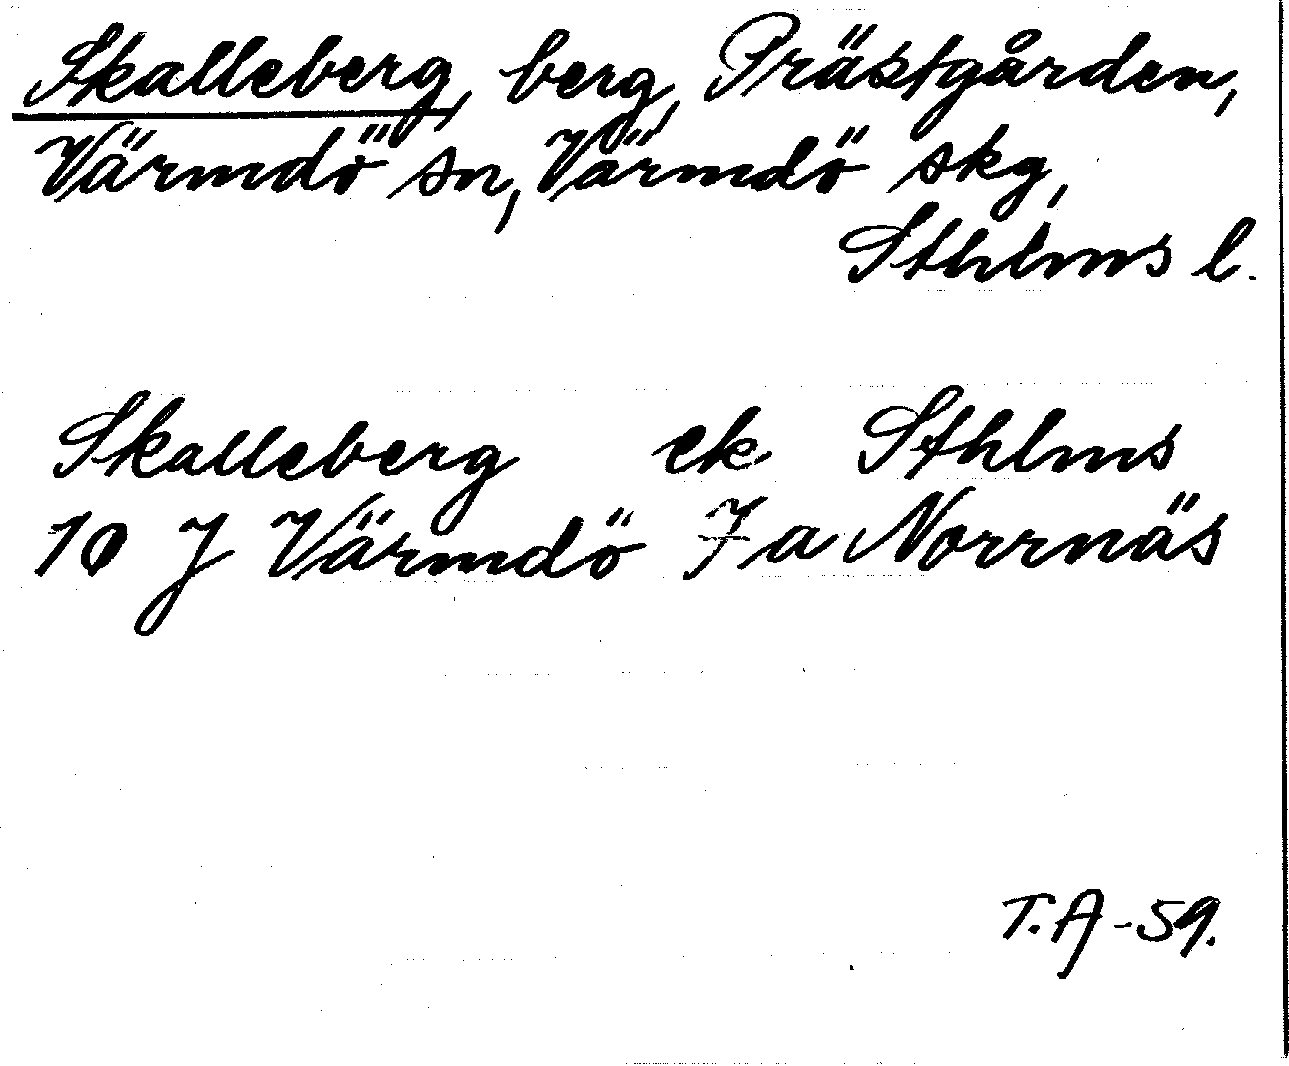 Skalleberg, berg, Prästgården,
Värmdö sn, Värmdö skg,
Sthlms l.
Skalleberg ek Sthlms
10 J Värmdö 7 a Norrnäs
T.A -59.